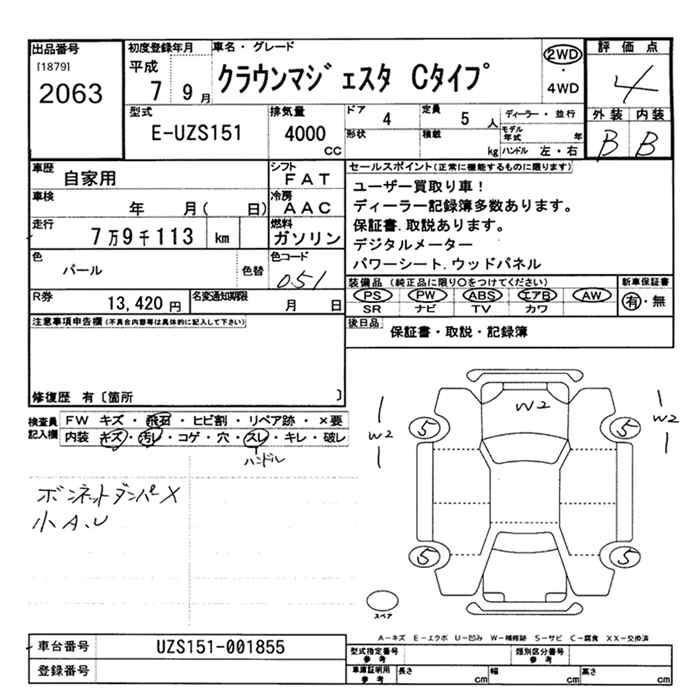 出品番号
[1879]
2063
初度登録年月
平成
7 9月
車名・グレード
クラウンマジェスタ Cタイプ
2WD
・
4WD
評価点
4
外装 内装
B B
型式
E-UZS151
排気量
4000
CC
ドア
4
定員
5人
形状
積載
kg
ディーラー・並行
モデル年式
年
ハンドル 左・右
車歴
自家用
シフト
FAT
車検
年 月( 日)
冷房
AAC
走行
7万9千113 km
燃料
ガソリン
色
パール
色替
色コード
051
R券
13,420円
名変通知期限
月 日
セールスポイント(正常に機能するものに限ります)
ユーザー買取り車!
ディーラー記録簿多数あります。
保証書.取説あります。
デジタルメーター
パワーシート.ウッドパネル
装備品 (純正品に限り○をつけてください)
PS PW ABS エアB AW
SR ナビ TV カワ
新車保証書
有・無
後日品
保証書・取説・記録簿
注意事項申告欄(不具合内容等は具体的に記入して下さい)
修復歴 有〔箇所 〕
検査員記入欄
FW キズ・飛石・ヒビ割・リペア跡・×要
内装 キズ・汚レ・コゲ・穴・スレ・キレ・破レ
ハンドル
ボンネットダンパX
小A.U
W2
W2
W2
5
5
5
5
スペア
A―キズ E―エクボ U―凹み W―補修跡 S―サビ C―腐食 XX―交換済
車台番号
UZS151-001855
登録番号
型式指定番号
参考
類別区分番号
参考
車庫証明用
参考
長さ
cm
幅
cm
高さ
cm